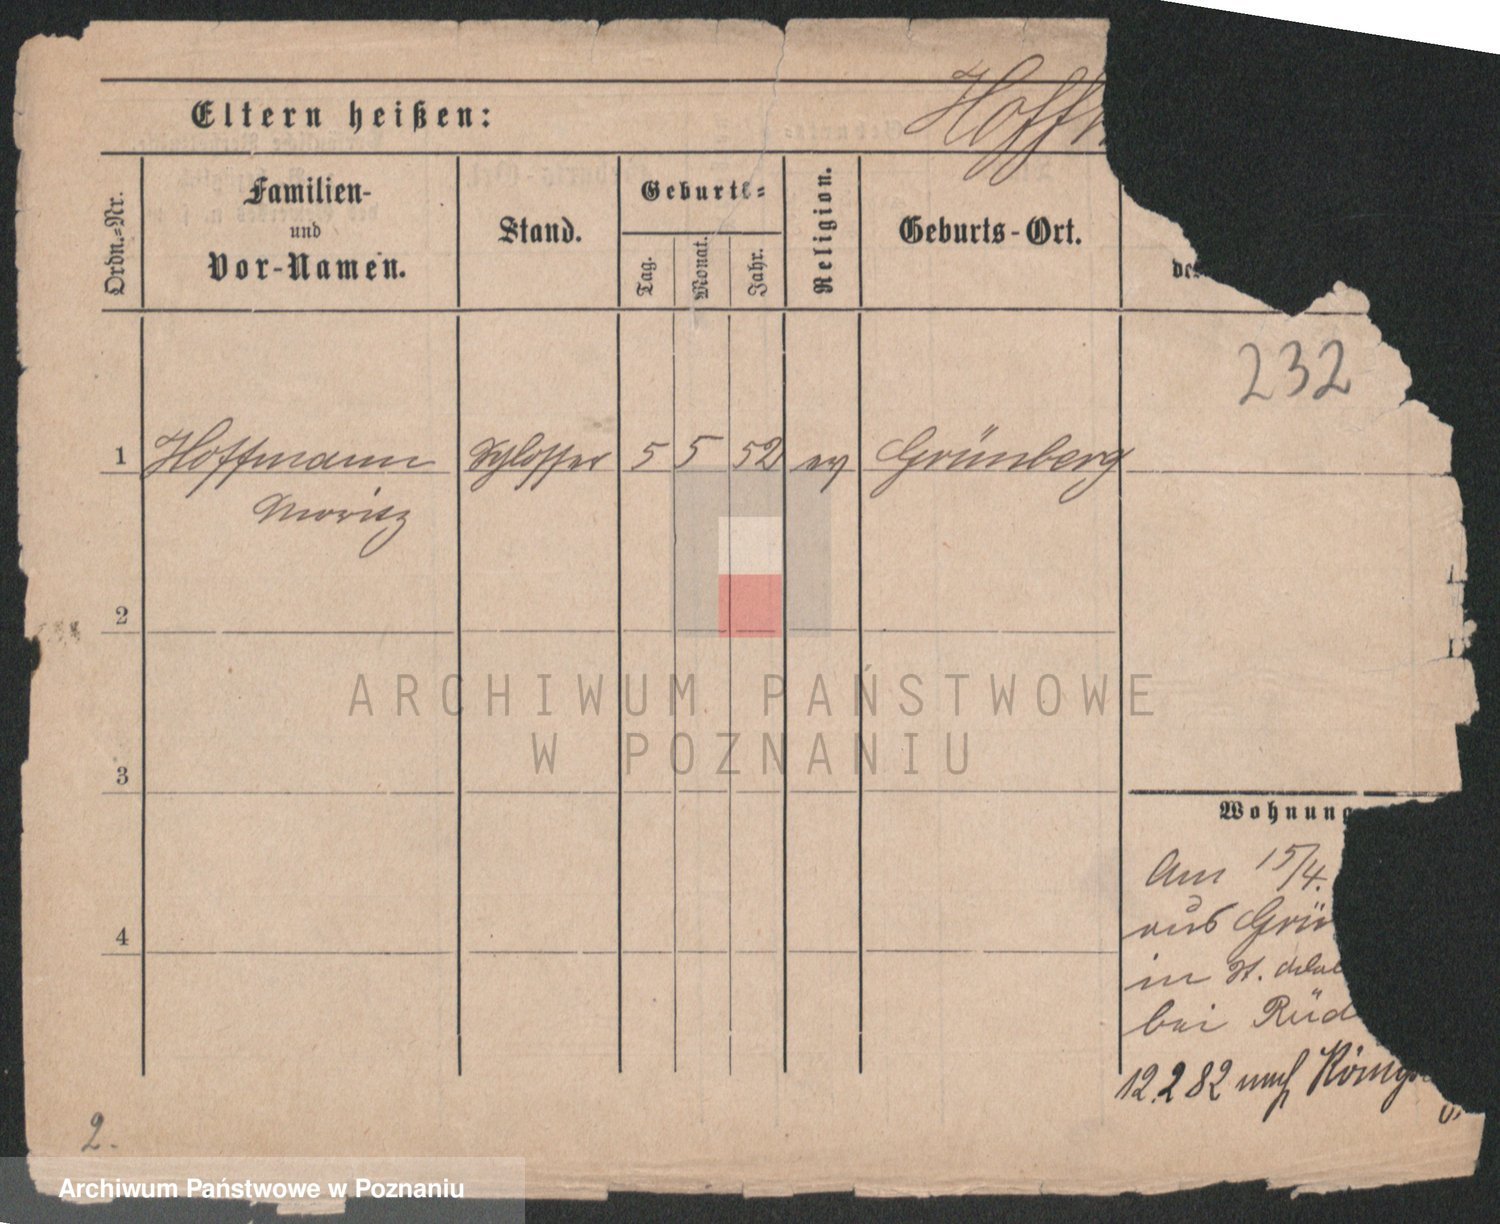 Eltern heißen:
Hoff
Ordn.=Nr.
Familien-
und
Vor-Namen.
Stand.
Geburts=
Tag.
Monat.
Jahr.
Religion.
Geburts-Ort.
des
232
1 Hoffmann Schlosser 5 5 52 ev Grünberg
Moritz
2
3
4
Wohnung
Am 15/4.
aus Grü
in St.
bei Rüd
12.2 82 nach Königs
2.
ARCHIWUM PAŃSTWOWE
W POZNANIU
Archiwum Państwowe w Poznaniu